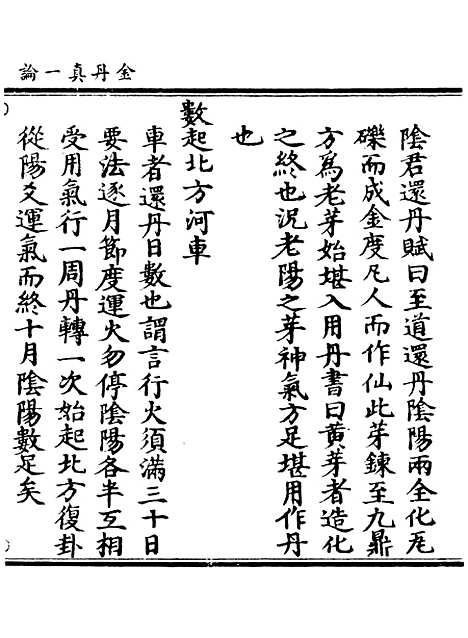 金丹真一論
陰君還丹賦曰至道還丹陰陽兩全化瓦
礫而成金度凡人而作仙此芽鍊至九鼎
方爲老芽始堪入用丹書曰黃芽者造化
之終也況老陽之芽神氣方足堪用作丹
也
數起北方河車
車者還丹日數也謂言行火須滿三十日
要法逐月節度運火勿停陰陽各半互相
受用氣行一周丹轉一次始起北方復卦
從陽爻運氣而終十月陰陽數足矣